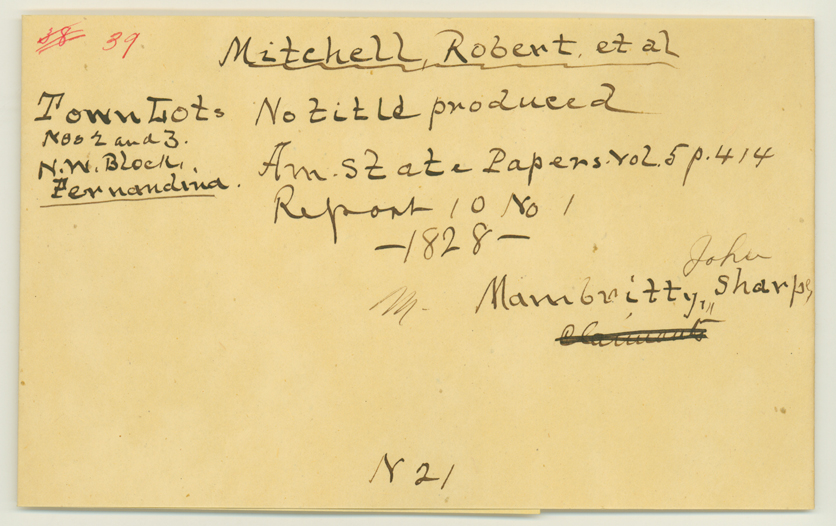 58 39
Mitchell, Robert, et al
Town Lots No title produced
Nos 2 and 3.
N.W. Block,
Fernandina.
Am. State Papers. Vol. 5 p. 414
Report 10 No 1
—1828—
John
M. Mambritty, Sharpe,
Claimants
N 21